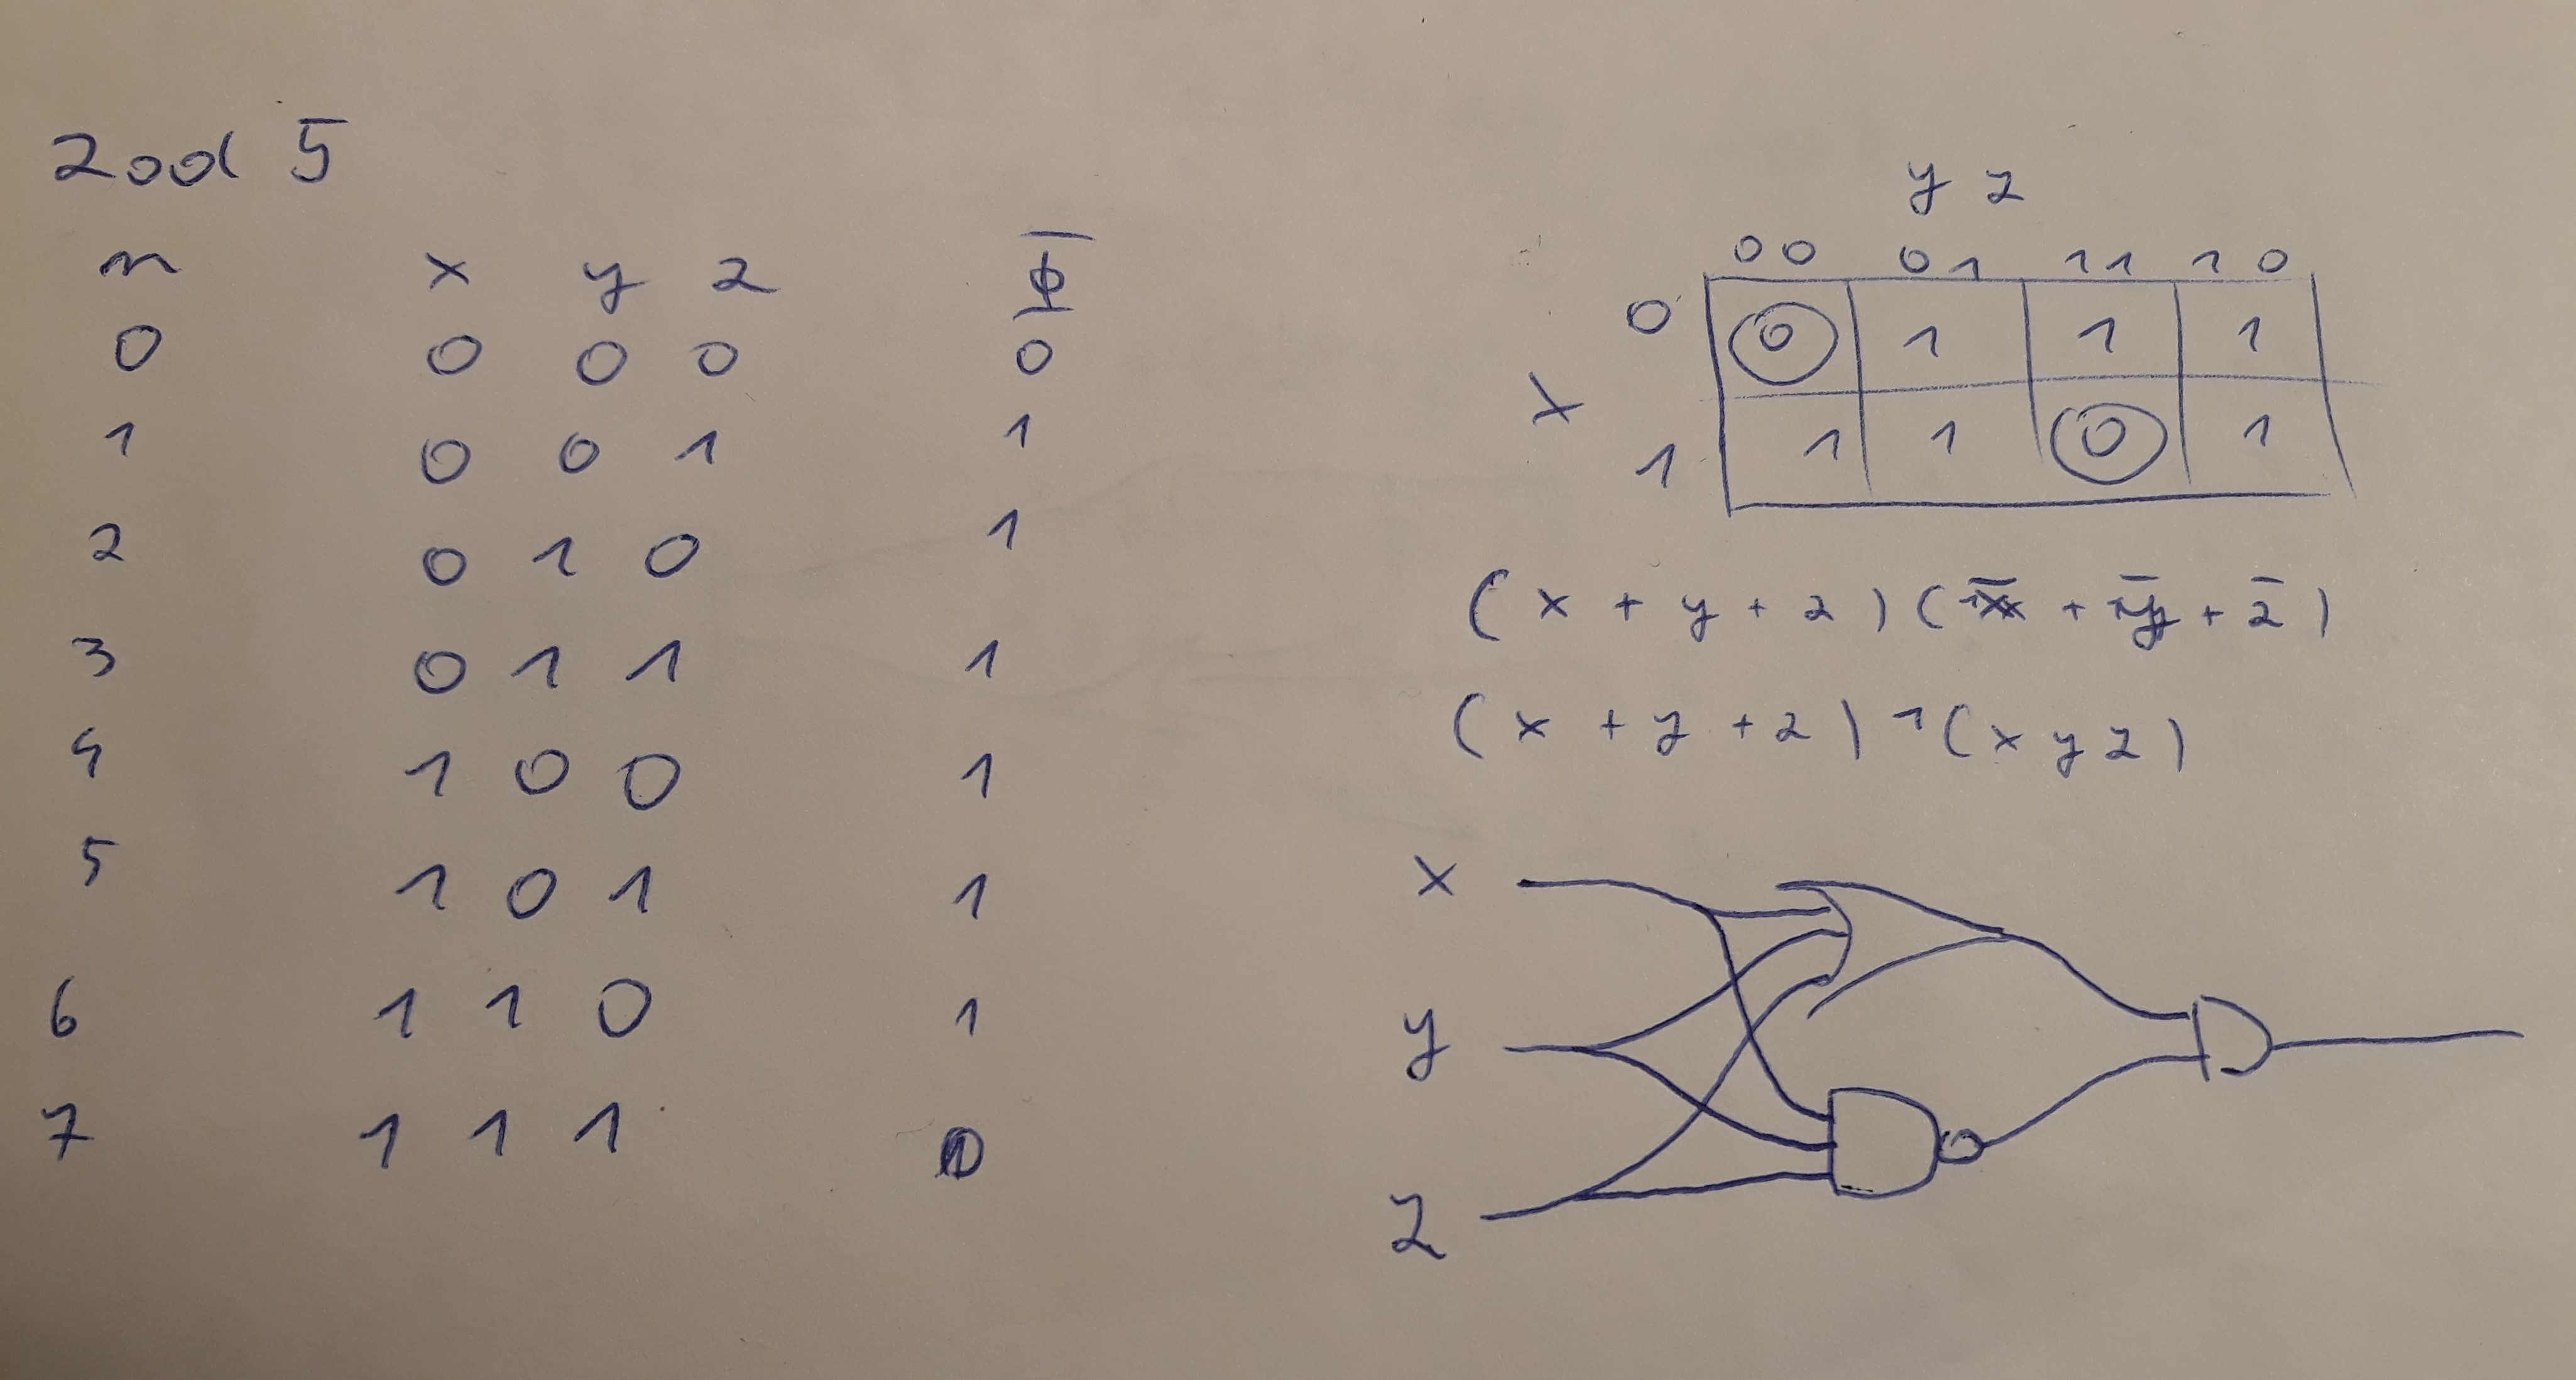 Zad 5
n x y z Φ
0 0 0 0 0
1 0 0 1 1
2 0 1 0 1
3 0 1 1 1
4 1 0 0 1
5 1 0 1 1
6 1 1 0 1
7 1 1 1 0
y z
00 01 11 10
0 0 1 1 1
x
1 1 1 0 1
(x + y + z)(x̅ + y̅ + z̅)
(x + y + z) ¬(x y z)
x
y
z